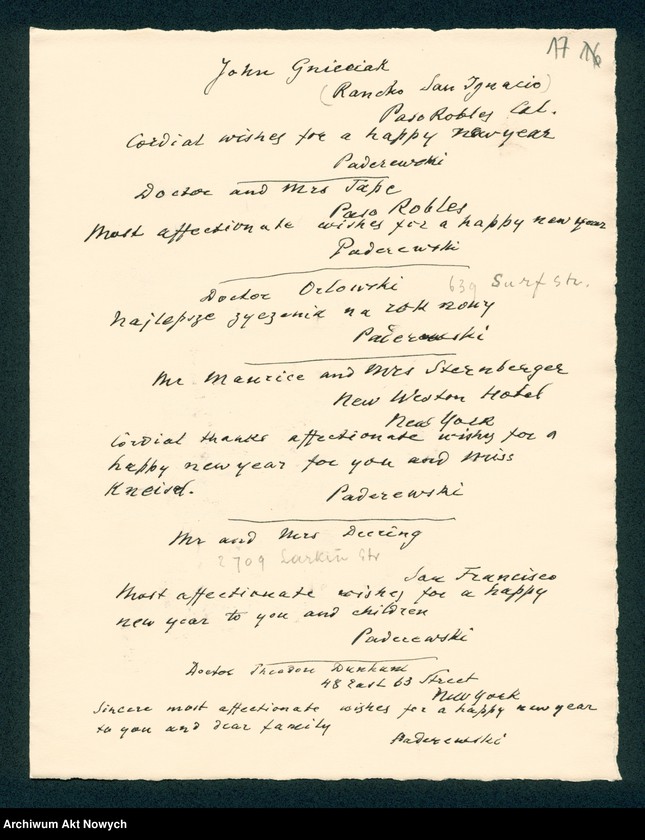 17 16
John Gnieciak
(Rancho San Ignacio)
Paso Robles Cal.
Cordial wishes for a happy new year
Paderewski
Doctor and Mrs Tape
Paso Robles
Most affectionate wishes for a happy new year
Paderewski
Doctor Orlowski 639 Surf Str.
Najlepsze życzenia na rok nowy
Paderewski
Mr Maurice and Mrs Sternberger
New Weston Hotel
New York
Cordial thanks affectionate wishes for a
happy new year for you and Miss
Kneisel.
Paderewski
Mr and Mrs Deering
2709 Larkin Str
San Francisco
Most affectionate wishes for a happy
new year to you and children
Paderewski
Doctor Theodore Dunham
48 East 63 Street
New York
Sincere most affectionate wishes for a happy new year
to you and dear family
Paderewski
Archiwum Akt Nowych